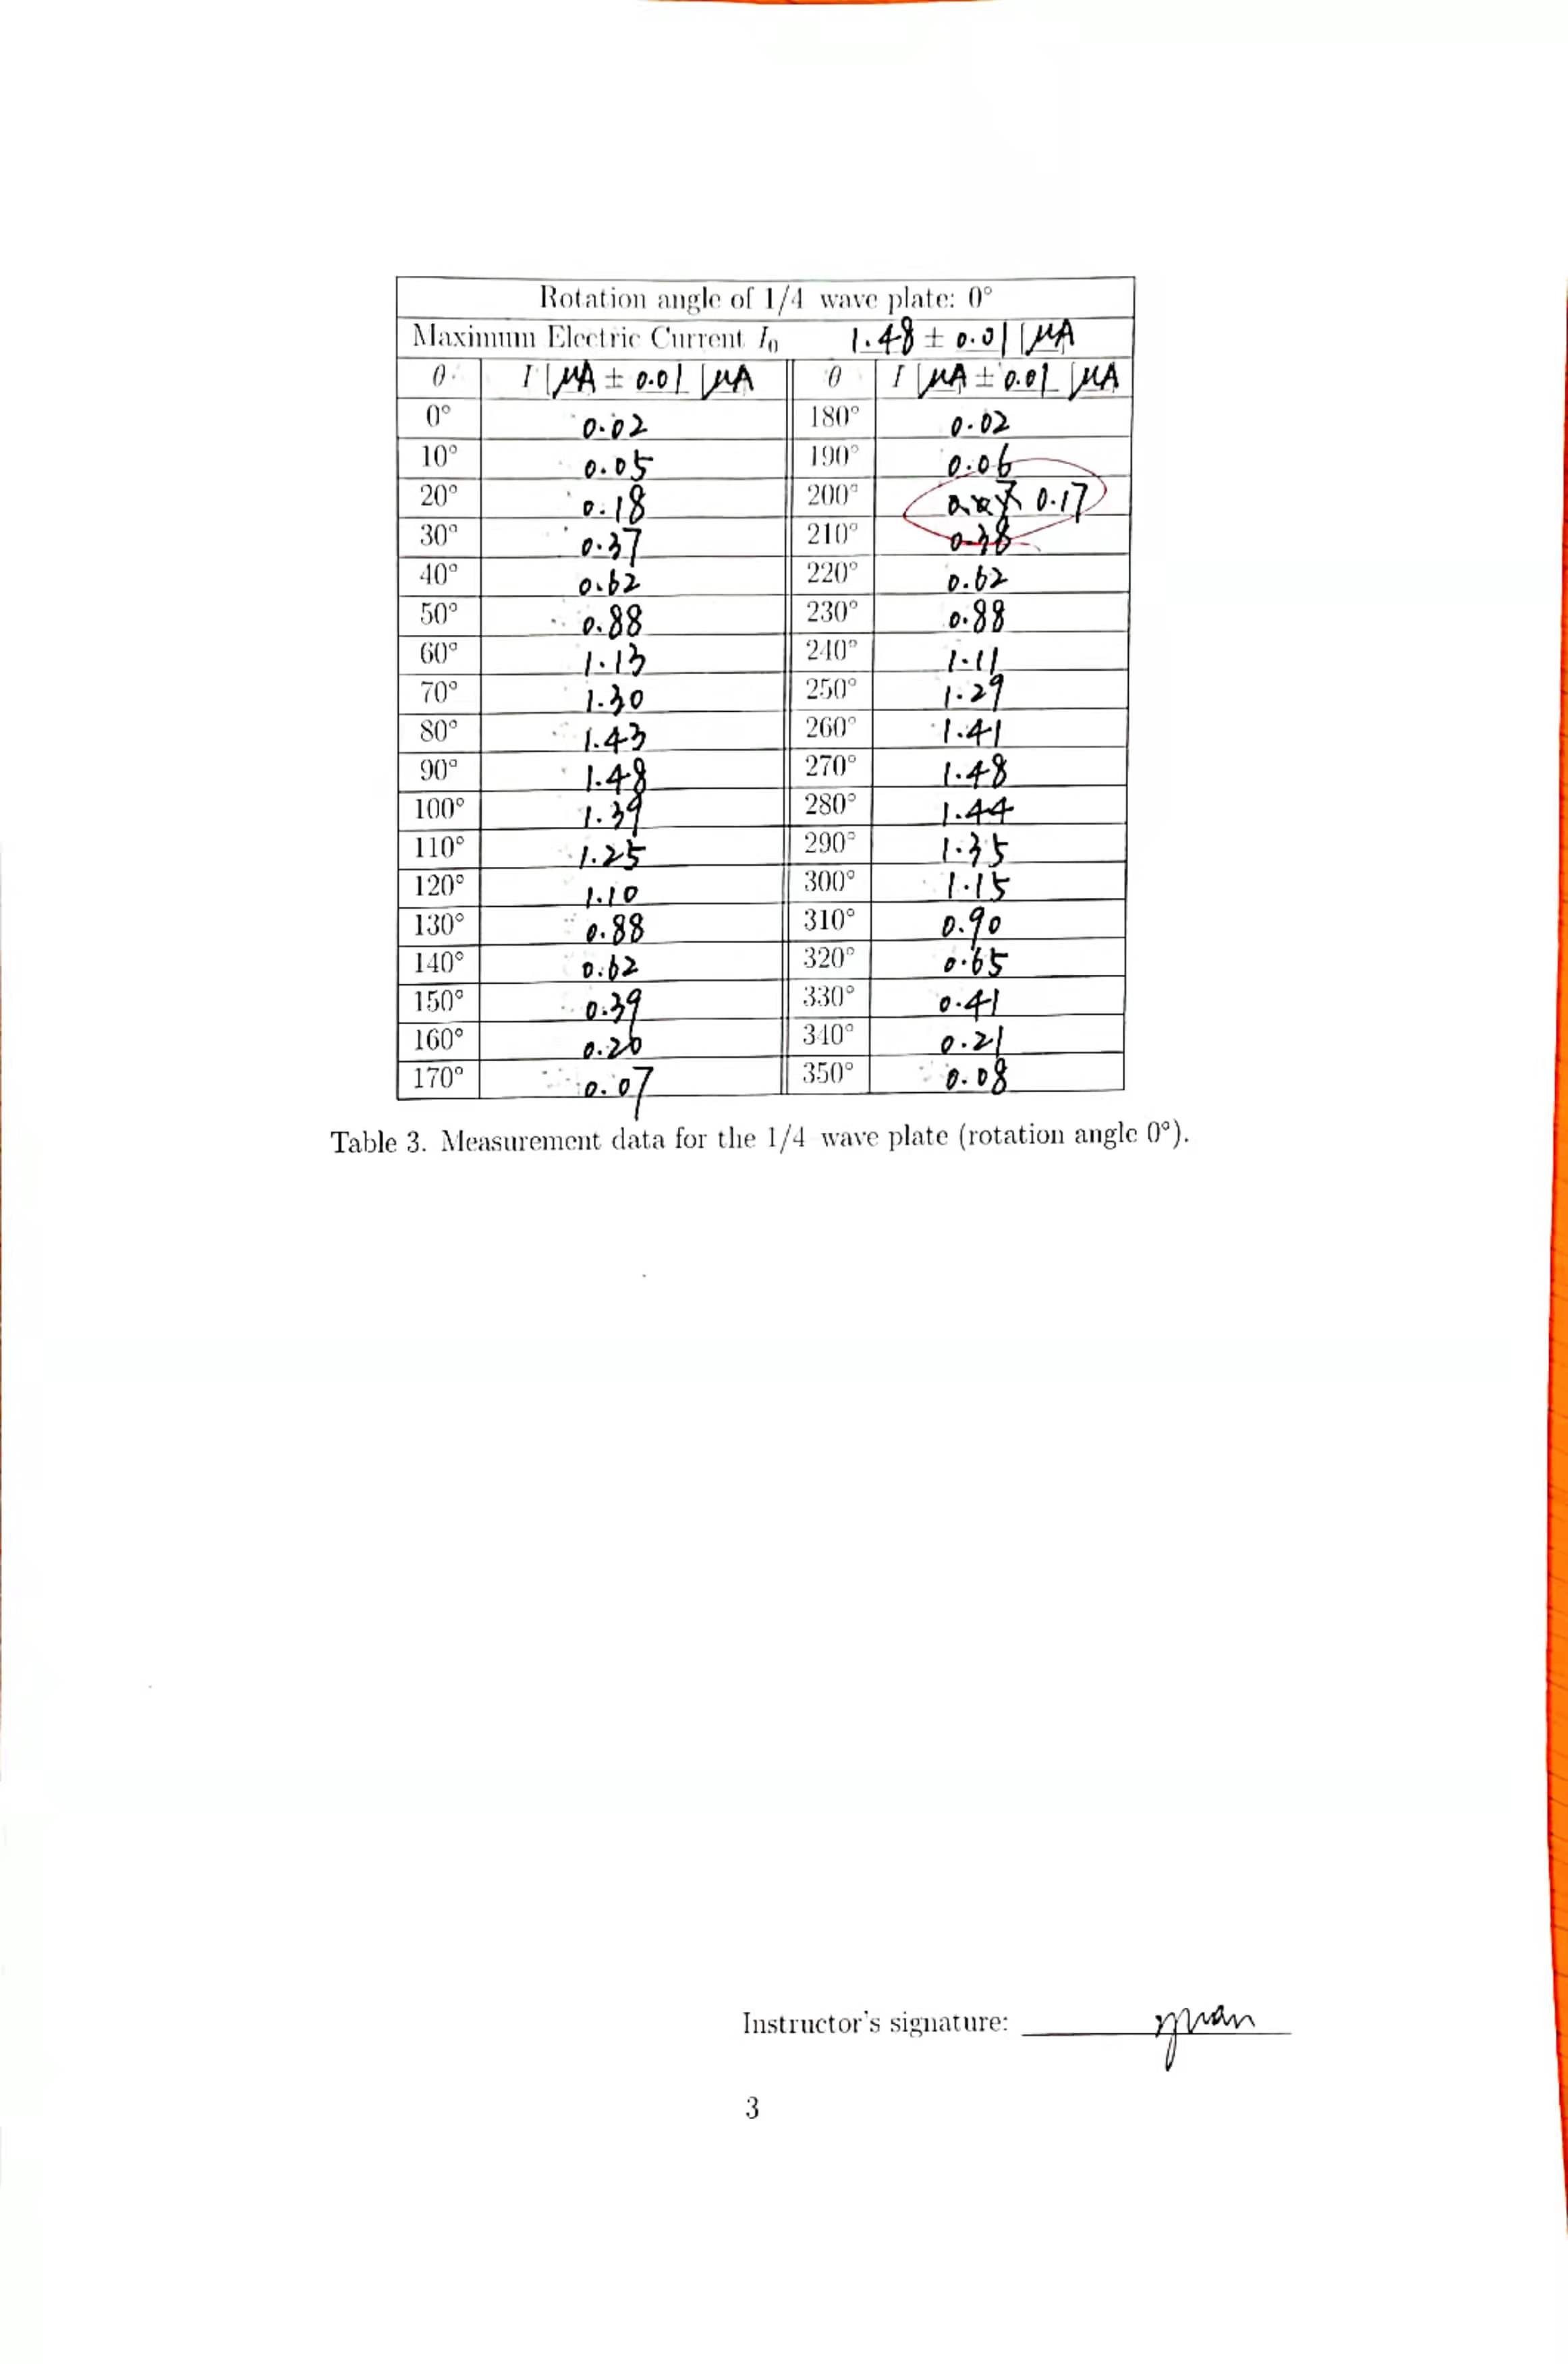 Rotation angle of 1/4 wave plate: 0°
Maximum Electric Current I₀ 1.48 ± 0.01 [μA]
θ I [μA] ± 0.01 [μA] θ I [μA] ± 0.01 [μA]
0° 0.02 180° 0.02
10° 0.05 190° 0.06
20° 0.18 200° 0.17
30° 0.37 210° 0.38
40° 0.62 220° 0.62
50° 0.88 230° 0.88
60° 1.13 240° 1.11
70° 1.30 250° 1.29
80° 1.43 260° 1.41
90° 1.48 270° 1.48
100° 1.39 280° 1.44
110° 1.25 290° 1.35
120° 1.10 300° 1.15
130° 0.88 310° 0.90
140° 0.62 320° 0.65
150° 0.39 330° 0.41
160° 0.20 340° 0.21
170° 0.07 350° 0.08
Table 3. Measurement data for the 1/4 wave plate (rotation angle 0°).
Instructor's signature:
3